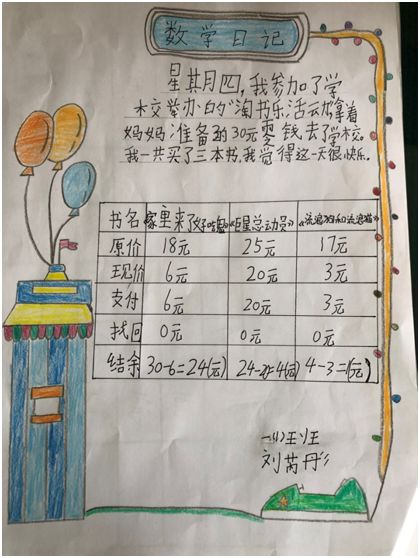 数学日记
星期四,我参加了学
校举办的“淘书乐”活动,拿着
妈妈准备的30元零钱,去了学校。
我一共买了三本书,我觉得这一天很快乐。
书名 家里来了 《巨星总动员》 《流浪狗和流浪猫》
原价 18元 25元 17元
现价 6元 20元 3元
支付 6元 20元 3元
找回 0元 0元 0元
结余 30-6=24(元) 24-20=4(元) 4-3=1(元)
班
刘芮彤